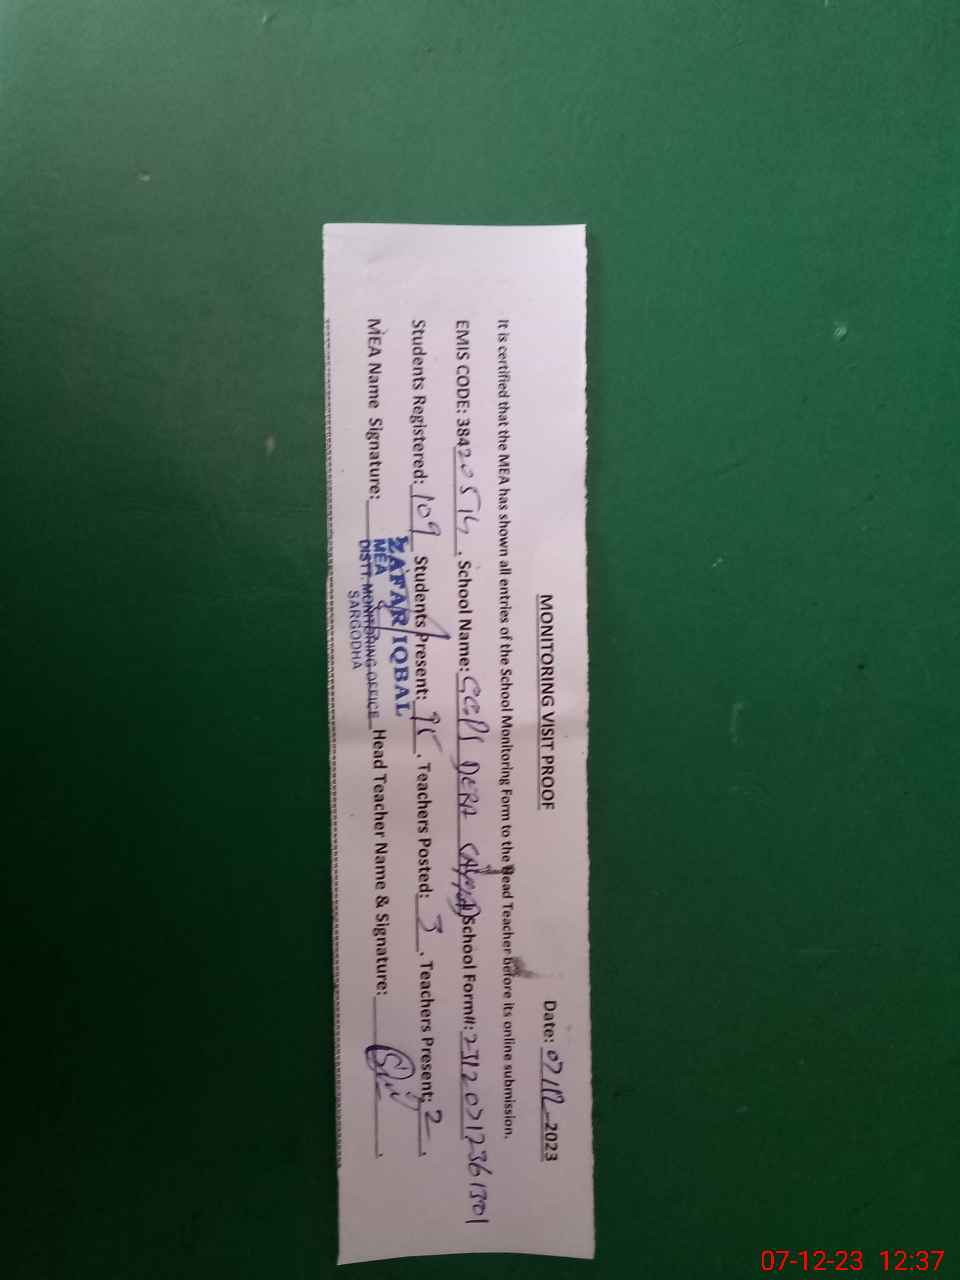 MONITORING VISIT PROOF
Date: 07/12-2023
It is certified that the MEA has shown all entries of the School Monitoring Form to the Head Teacher before its online submission.
EMIS CODE: 38420514, School Name: GGPS DERA School Form#: 23120712361301
Students Registered: 109 Students Present: 95, Teachers Posted: 3, Teachers Present: 2,
MEA Name Signature: Head Teacher Name & Signature:
ZAFAR IQBAL
MEA
DISTT. MONITORING OFFICE
SARGODHA
07-12-23 12:37